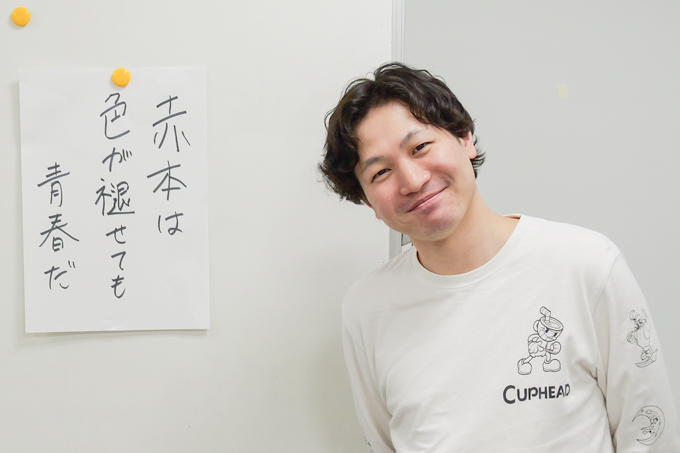 赤本は
色が褪せても
青春だ
CUPHEAD